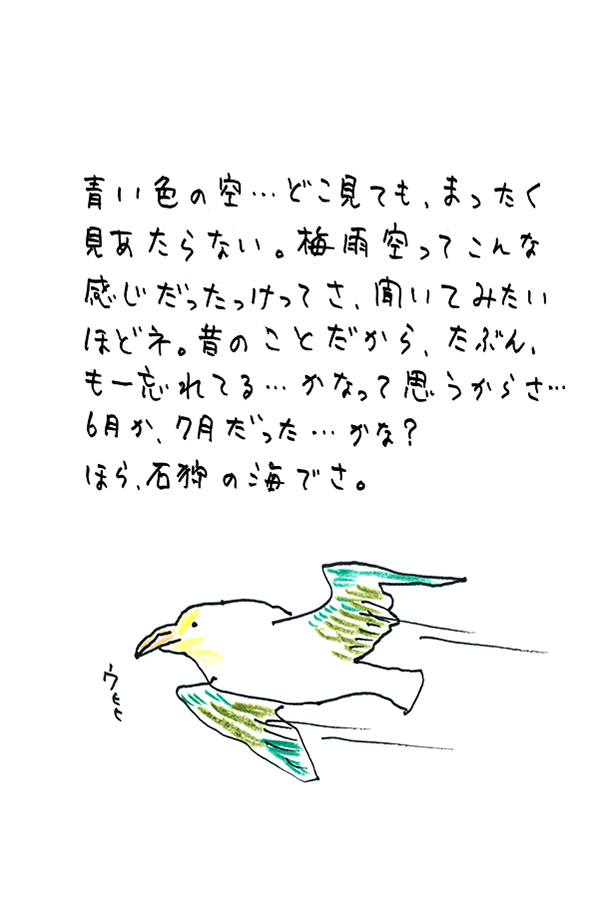 青い色の空…どこ見ても、まったく
見あたらない。梅雨空ってこんな
感じだったっけってさ、聞いてみたい
ほどネ。昔のことだから、たぶん、
も一忘れてる…かなって思うからさ…
6月か、7月だった…かな?
ほら、石狩の海でさ。
ウヒヒ